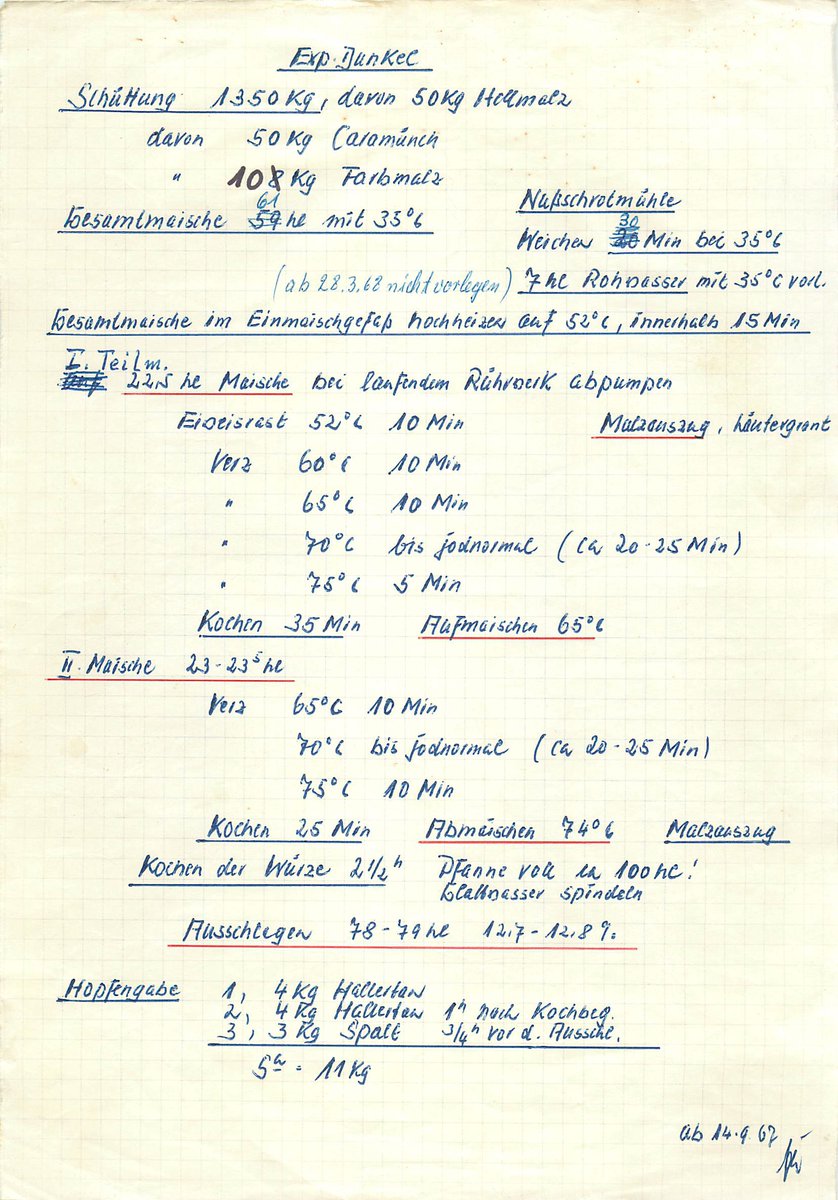 Exp. Dunkel
Schüttung 1350 Kg, davon 50 Kg Hellmalz
davon 50 Kg Caramünch
" 10 Kg Farbmalz
Gesamtmaische 61 hl mit 35°C
Naßschrotmühle
Weichen 30 Min bei 35°C
(ab 28.3.68 nicht vorlegen) 7 hl Rohwasser mit 35°C vorl.
Gesamtmaische im Einmaischgefäß hochheizen auf 52°C, innerhalb 15 Min
I. Teilm.
22,5 hl Maische bei laufendem Rührwerk abpumpen
Eiweisrast 52°C 10 Min Malzauszug, Läutergrant
Verz 60°C 10 Min
" 65°C 10 Min
" 70°C bis jodnormal (ca 20-25 Min)
" 75°C 5 Min
Kochen 35 Min Aufmaischen 65°C
II. Maische 23-23⁵ hl
Verz 65°C 10 Min
70°C bis jodnormal (ca 20-25 Min)
75°C 10 Min
Kochen 25 Min Abmaischen 74°C Malzauszug
Kochen der Würze 2 1/2 h Pfanne voll ca 100 hl!
Glattwasser spindeln
Ausschlagen 78-79 hl 12,7-12,8 %.
Hopfengabe 1, 4 Kg Hallertau
2, 4 Kg Hallertau 1h nach Kochbeg.
3, 3 Kg Spalt 3/4 h vor d. Ausschl.
Sa = 11 Kg
ab 14.9.67